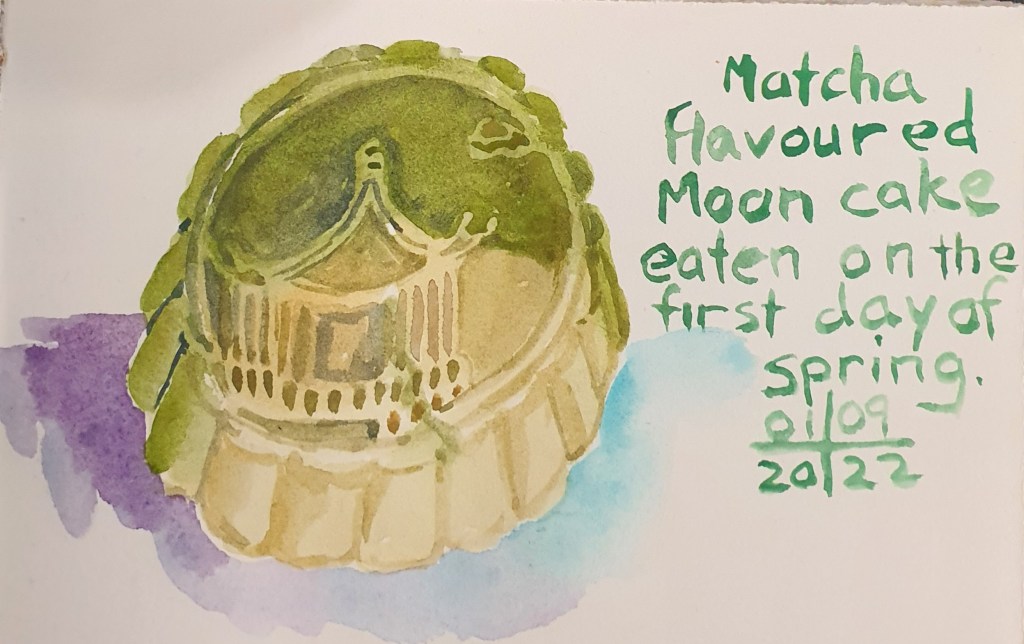 Matcha
Flavoured
Moon cake
eaten on the
first day of
spring.
01|09
20|22